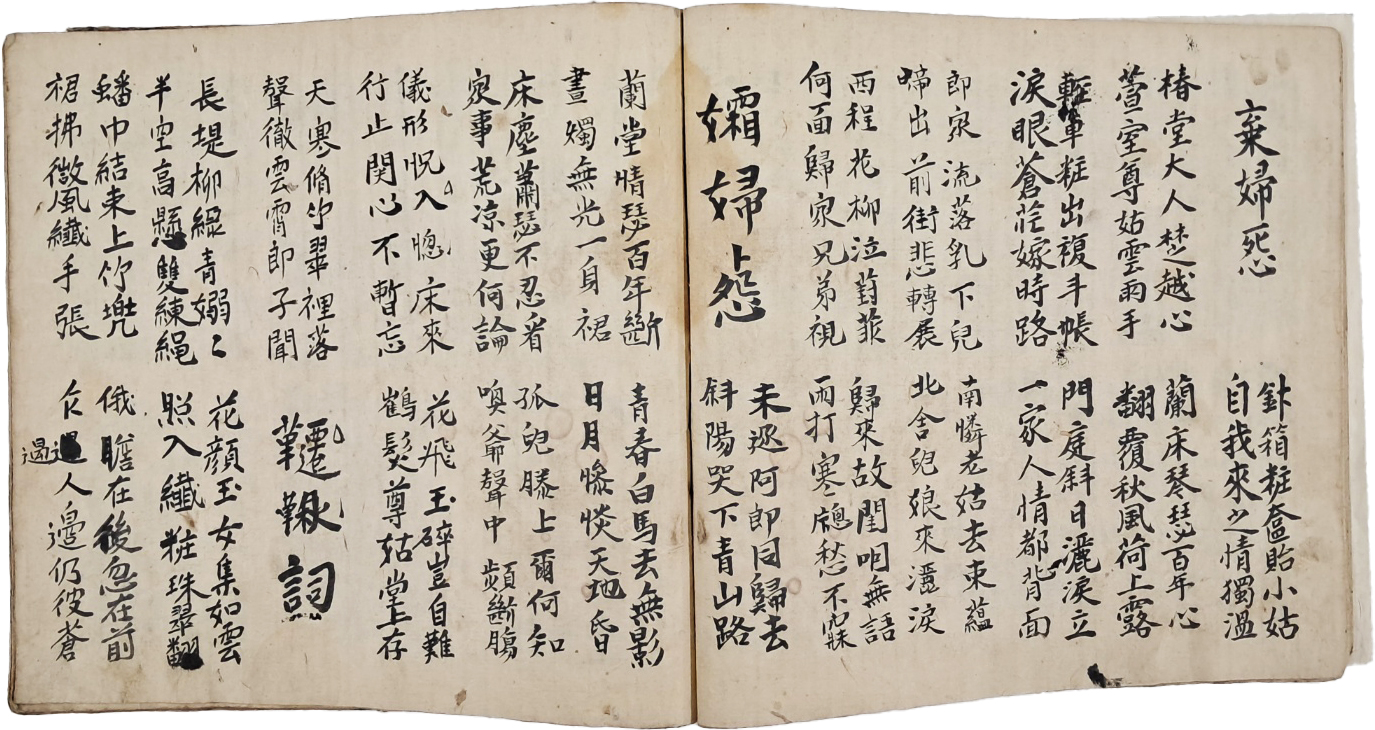 棄婦怨
釙箱粧奩貽小姑
自我來之情獨溫
椿堂大人楚越心
蘭床琴瑟百年心
萱室尊姑雲雨手
翻覆秋風荷上露
輕車粧出複斗帳
門庭斜日灑淚立
淚眼蒼茫嫁時路
一家人情都背面
即家流落乳下兒
南憐老姑去東蘊
啼出前街悲轉展
北舍兒娘來灑淚
西程花柳泣葑菲
歸來故閨咽無語
何面歸家兄弟視
雨打寒牕愁不寐
未逐阿郎同歸去
斜陽哭下青山路
孀婦怨
蘭堂情瑟百年斷
青春白馬去無影
晝燭無光一身裙
日月慘惔天地昏
床塵蕭瑟不忍看
孤兒膝上爾何知
家事荒凉更何論
喚爺聲中頻斷膓
儀形怳入牕床來
花飛玉碎豈自難
行止関心不暫忘
鶴髮尊姑堂上存
天寒脩竹翠裡落
聲徹雲霄即子聞
韆鞦詞
長堤柳綠青嫋〻
花顔玉女集如雲
半空高懸雙練縄
照入纖粧珠翠翻
蟠巾結束上竹兠
俄瞻在後忽在前
裙拂微風纖手張
乍過人邊仍彼蒼